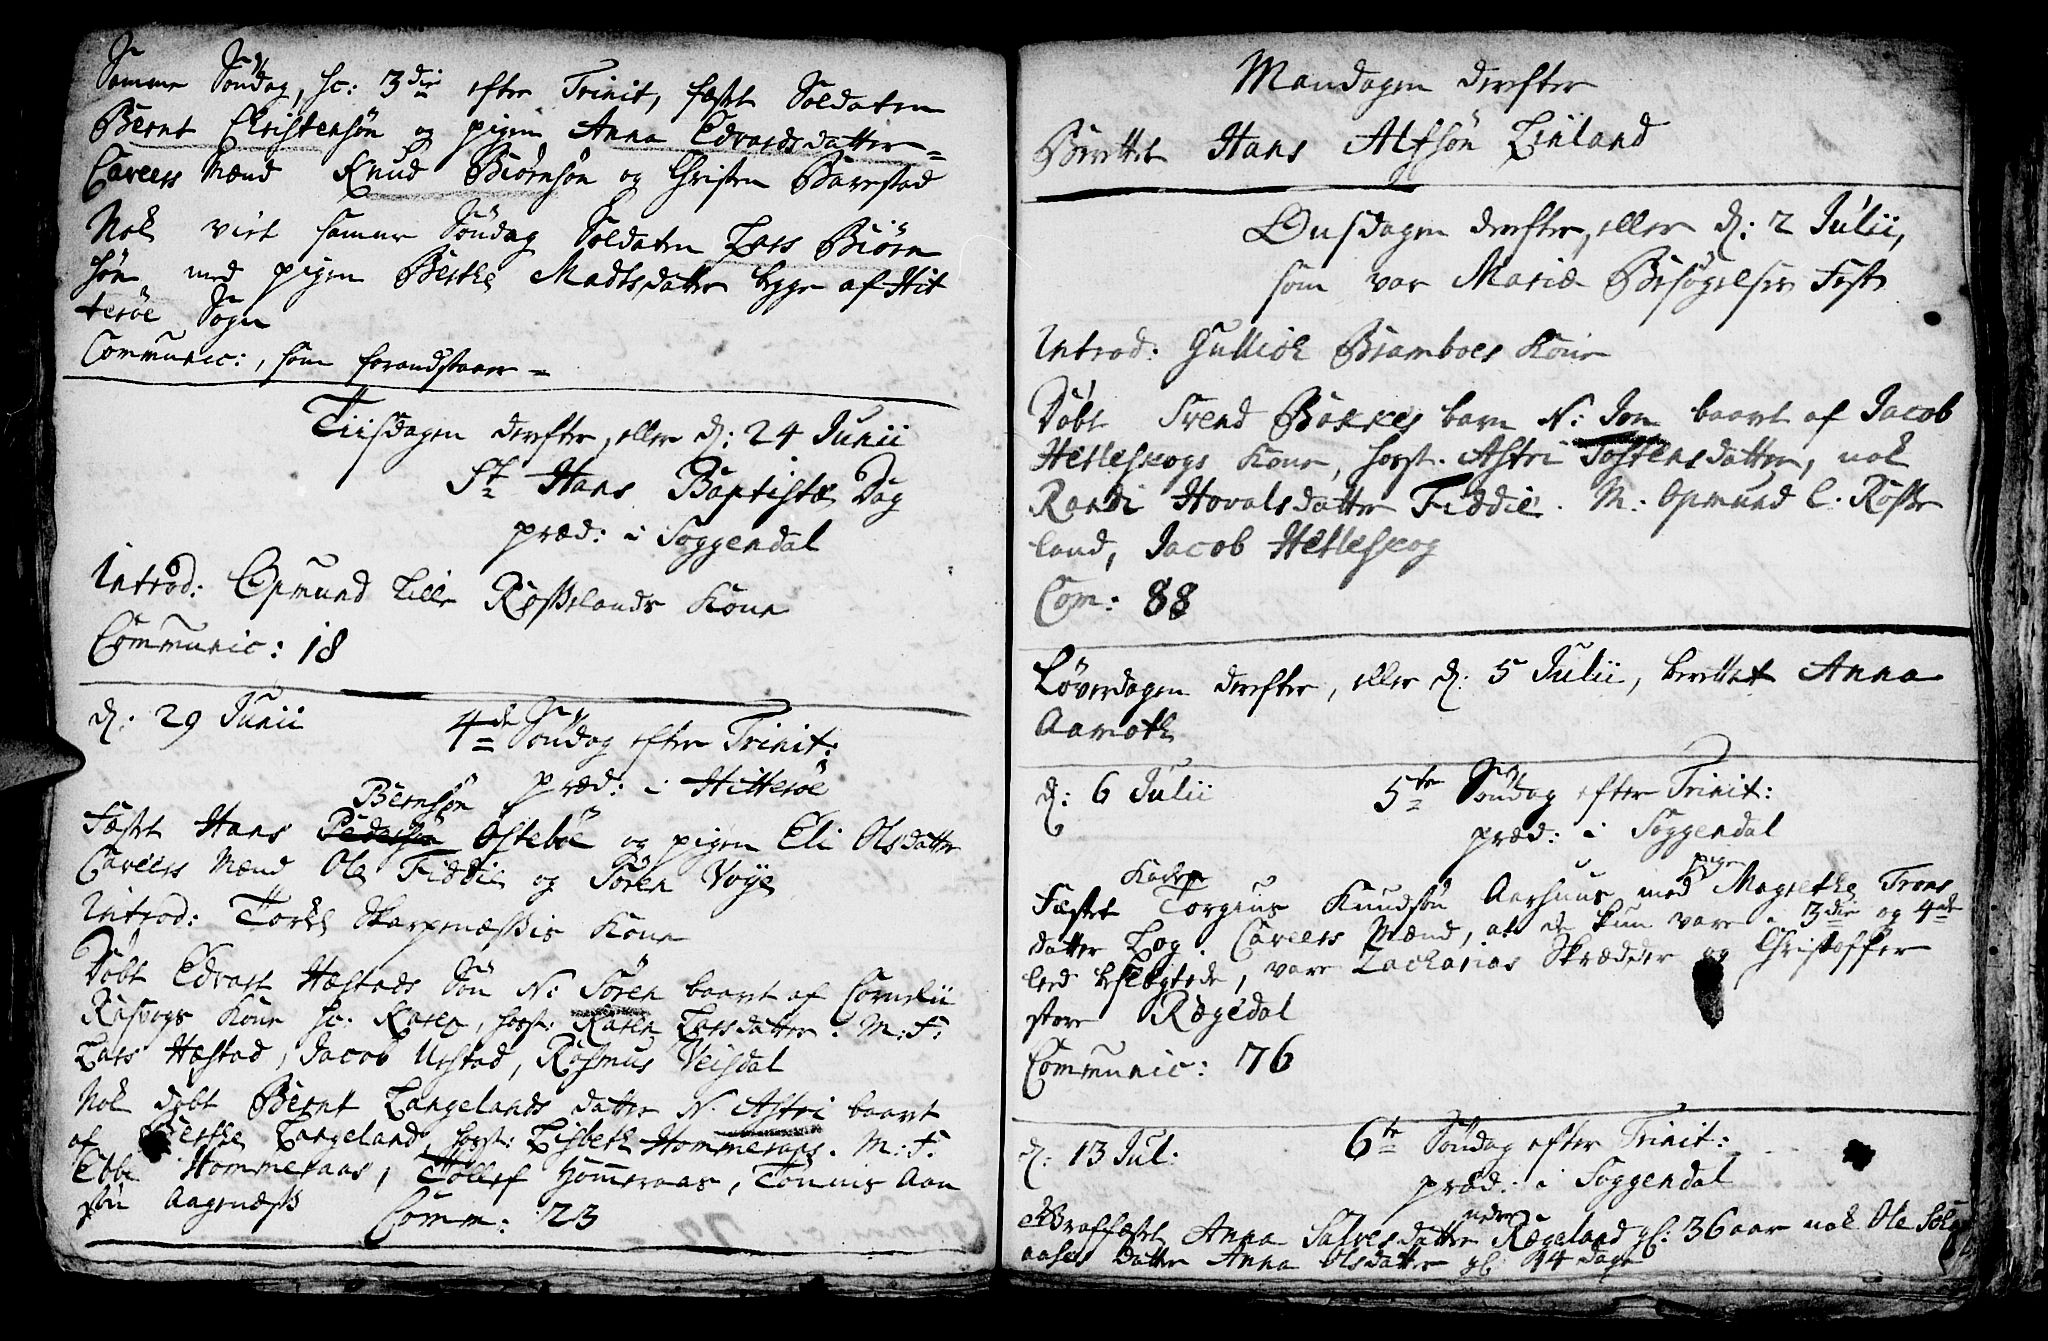 Samme Søndag, sc: 3die efter Trinit, fæstet Soldaten
Bernt Christensøn og pigen Anna Edvardsdatter =
Caveers Mænd Knud Biørnsøn og Christen Barstad
Nok viet samme Søndag Soldaten Lars Biørn
søn med pigen Berthe Madtsdatter begge af Hit
terøe Sogn
Communic:, som forandstaaer =
Tiisdagen derefter, eller d: 24 Junii
St Hans Baptistæ Dag
præd: i Soggendal
Introd: Opmund Lille Røsslands Kone
Communic: 18
d: 29 Junii 4de Søndag efter Trinit:
præd: i Hitterøe
Bernsøn
Fæstet Hans Pedersøn Ostebøe og pigen Eli Olsdatter
Caveers Mænd Ole Fiddie og Søren Voye
Introd: Torkel Skarpenæssis Kone
Døbt Edvart Hæstads Søn N: Søren baaret af Cornelii
Rasvogs Kone sc: Karen, forst: Karen Larsdatter. M: F:
Lars Hæstad, Jacob Urstad, Rasmus Veisdal
Nok døbt Bernt Langelands datter N. Astri baaret
af Berthe Langeland, forst: Lisbeth Hommeraas. M: F.
Ebbe Hommeraas, Tollef Hommeraas, Tønnis Aan
søn Aagenæss Comm: 23
Mandagen derefter
Berettet Hans Alfsøn Linland
Onsdagen derefter, eller d: 2 Julii,
som var Mariæ Besøgelses Fest
Introd: Gulliok Biamboes Kone
Døbt Svend Bakkes barn N: Jon baaret af Jacob
Hetleskogs Kone, forst. Astri Tostensdatter, nok
Randi Hovalsdatter Fiddie. M: Opmund l. Røsse
land, Jacob Hetleskog
Com: 88
Løverdagen derefter, eller d: 5 Julii, berettet Anna
Aamoth
d: 6 Julii 5te Søndag efter Trinit:
præd: i Soggendal
pigen
Fæstet Torgius Knudsøn Aarhuus med Magrethe Trons
datter Log. Caveers Mænd, at de kun vare i 3die og 4de
leed beslegtede, vare Zacharias Skrædder og Christoffer
store Rægedal
Communic: 76
d: 13 Jul: 6te Søndag efter Trinit:
præd: i Soggendal
nedre
Grafæstet Anna Salvesdatter Rægeland gl: 36 aar nok Ole
aases Datter Anna Olsdatter gl 14 dage